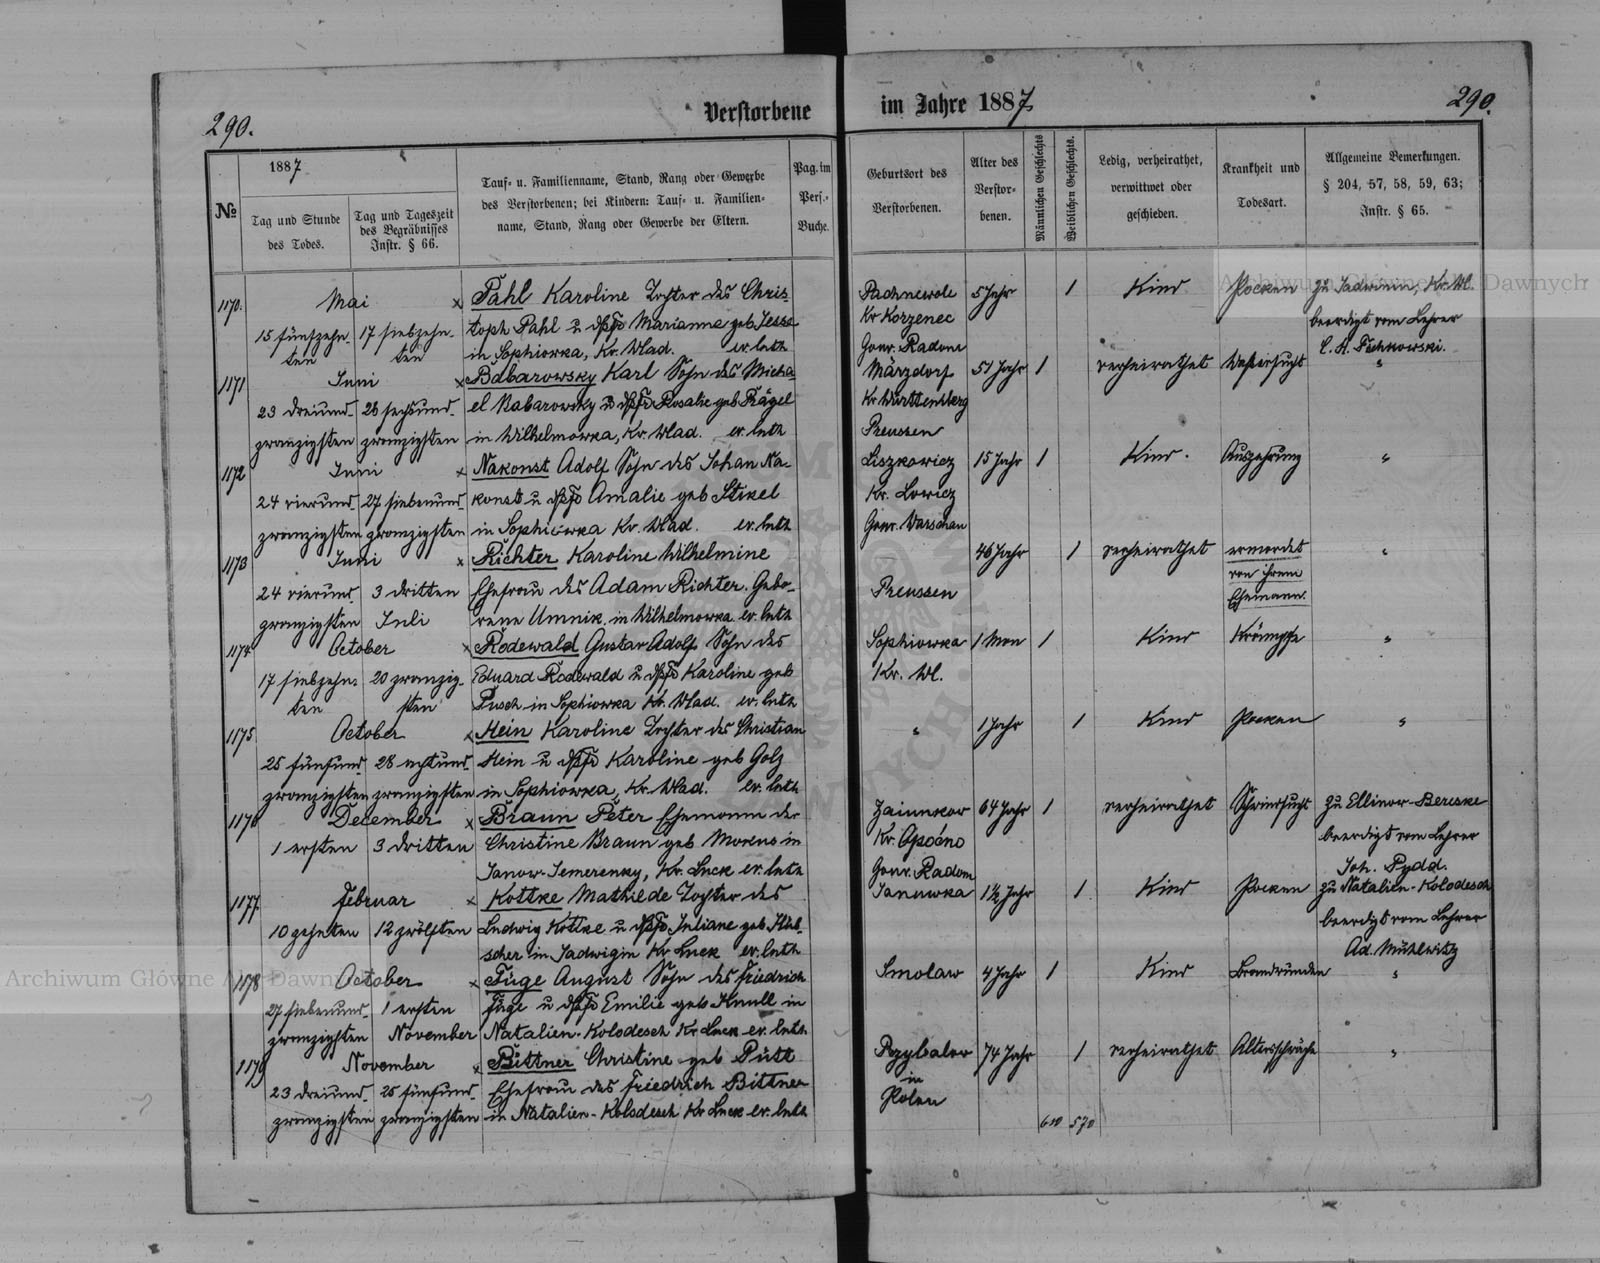 290.
Verstorbene im Jahre 1887
290.
№
1887
Tag und Stunde des Todes.
Tag und Tageszeit des Begräbnisses Instr. § 66.
Tauf- u. Familienname, Stand, Rang oder Gewerbe
des Verstorbenen; bei Kindern: Tauf- u. Familien-
name, Stand, Rang oder Gewerbe der Eltern.
Pag. im Pers.- Buche.
Geburtsort des Verstorbenen.
Alter des Verstor- benen.
Männlichen Geschlechts
Weiblichen Geschlechts.
Ledig, verheirathet, verwittwet oder geschieden.
Krankheit und Todesart.
Allgemeine Bemerkungen.
§ 204, 57, 58, 59, 63;
Instr. § 65.
1170. Mai x Pahl Karoline Tochter des Chris- 5 Jahr 1 Kind Pocken
15 fünfzehn- 17 siebzehn- toph Pahl u Marianna geb. Kr Korzenec beerdigt vom Lehrer
ten ten in Sophiowka, Kr. Wlad. ev. luth Gouv. Radom
1171 Juni x Babarowsky Karl Sohn des Micha- Märzdorf 51 Jahr 1 verheirathet Wassersucht "
23 dreiund- 26 sechsund- el Babarowsky u Rosalie geb Prägel Kr. Württemberg
zwanzigsten zwanzigsten in Wilhelmowka, Kr. Wlad. ev. luth Preussen
1172 Juni x Nakonst Adolf Sohn des Johan Na- Liszkowicz 15 Jahr 1 Kind. Auszehrung "
24 vierund- 27 siebenund- konst u Amalie geb Stikel Kr. Lowicz
zwanzigsten zwanzigsten in Sophiowka Kr. Wlad. ev. luth Gouv. Warschau
1173 Juni x Richter Karoline Wilhelmine 46 Jahr 1 verheirathet ermordet "
24 vierund- 3 dritten Ehefrau des Adam Richter. Gebo- Preussen von ihrem
zwanzigsten Juli rene Umnik. in Wilhelmowka ev. luth Ehemann.
1174. October x Rodewald Gustav Adolf Sohn des Sophiowka 1 Mon 1 Kind Krämpfe "
17 siebzehn- 20 zwanzig- Eduard Rodewald u Karoline geb Kr. Wl.
ten sten Pusch in Sophiowka Kr. Wlad. ev. luth
1175 October x Hein Karoline Tochter des Christian " 1 Jahr 1 Kind Pocken "
25 fünfund- 28 achtund- Hein u Karoline geb Golz
zwanzigsten zwanzigsten in Sophiowka, Kr. Wlad. ev. luth
1176 December x Braun Peter Ehemann der 64 Jahr 1 verheirathet Schwindsucht zu Ellinow-Bereske
1 ersten 3 dritten Christine Braun geb in Kr. Opočno beerdigt vom Lehrer
Janow-Jemerenky, Kr. Luck ev. luth Gouv. Radom Joh. Pydd.
1177. Februar x Kottke Mathilde Tochter des Janowka 1½ Jahr 1 Kind Pocken zu Natalien-Kolodesch
10 zehnten 12 zwölften Ludwig Kottke u Juliane geb. Hüb- beerdigt vom Lehrer
scher in Jadwigin Kr Luck ev. luth Ad. Mühlwitz
1178 October x Füge August Sohn des Friedrich Smolaw 4 Jahr 1 Kind Brandwunden "
27 siebenund- 1 ersten Füge u Emilie geb Knull in
zwanzigsten November Natalien-Kolodesch Kr Luck ev. luth
1179 November x Bittner Christine geb Pütt 74 Jahr 1 verheirathet Altersschwäche "
23 dreiund- 25 fünfund- Ehefrau des Friedrich Bittner in
zwanzigsten zwanzigsten in Natalien-Kolodesch Kr Luck ev. luth Polen
610 570
Archiwum Główne Akt Dawnych
Archiwum Główne Akt Dawnych